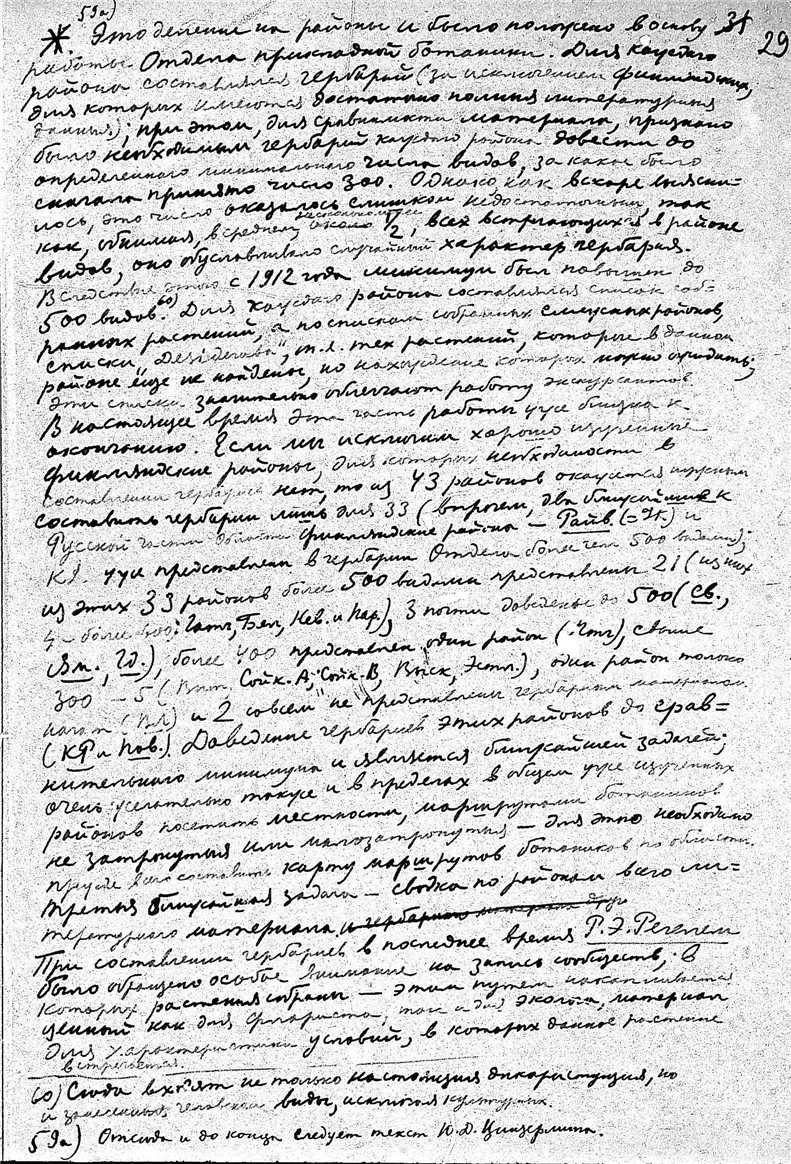 59а)
* Это деление на районы и было положено в основу 31
29
работы Отдела прикладной ботаники. Для каждого
района составлялся гербарий (за исключением финляндских,
для которых имеются достаточно полные литературные
данные); при этом, для сравнимости материала, признано
было необходимым гербарий каждого района довести до
определенного минимального числа видов, за какое было
сначала принято число 300. Однако, как вскоре выясни-
лось, это число оказалось слишком недостаточным, так
как, обнимая, в среднем, около 1/2, всех встречающихся в районе
видов, оно обуславливало случайный характер гербария.
Вследствие этого с 1912 года минимум был повышен до
500 видов.60) Для каждого района составлялся список соб-
ранных растений, а по спискам собранных смежных районов,
списки "Desiderata", т.е. тех растений, которые в данном
районе еще не найдены, но нахождение которых можно ожидать;
эти списки значительно облегчают работу экскурсантов.
В настоящее время эта часть работы уже близка к
окончанию. Если мы исключим хорошо изученные
финляндские районы, для которых необходимости в
составлении гербариев нет, то из 43 районов окажется нужным
составить гербарии лишь для 33 (впрочем, два ближайших к
Русской части области финляндские района — Райв. (=Ik.) и
Kl. уже представлены в гербарии Отдела более чем 500 видами);
из этих 33 районов более 500 видами представлены 21 (из них
4 – более 600: Гатч, Бел, Нев. и Нар), 3 почти доведены до 500 (Св.,
Ям., Гд.), более 400 представлен один район (Чт), свыше
300 – 5 (Вып, Сойк.А, Сойк.В, Выск, Эстл.), один район только
начат (ВЛ) и 2 совсем не представлены гербарным материалом
(КФ и Пов.). Доведение гербариев этих районов до срав-
нительного минимума и является ближайшей задачей;
очень желательно также и в пределах в общем уже изученных
районов посетить местности, маршрутами ботаников
не затронутые или малозатронутые — для этого необходимо
прежде всего составить карту маршрутов ботаников по области.
Третья ближайшая задача — сводка по районам всего ли-
тературного материала и гербарного материала др.
При составлении гербариев в последнее время Р.Э.Регелем
было обращено особое внимание на запись сообществ, в
которых растения собраны — этим путем накапливается
ценный как для флориста, так и для эколога, материал
для характеристики условий, в которых данное растение
встречается.
60) Сюда входят не только настоящие дикорастущие, но
и занесенные человеком виды, исключая культурных.
59а) Отсюда и до конца следует текст Ю.Д. Цинзерлинга.